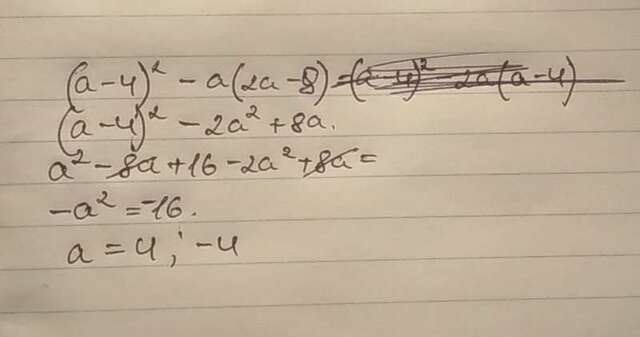 (a-4)² - a(2a-8) = (a-4)² - 2a(a-4)
(a-4)² - 2a² + 8a.
a² - 8a + 16 - 2a² + 8a =
-a² = -16.
a = 4; -4